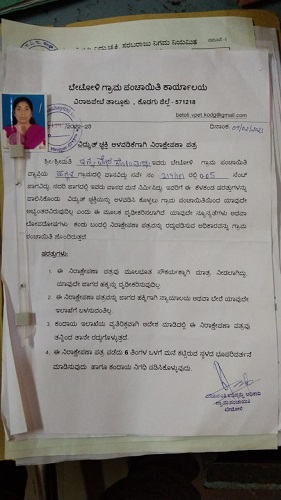 ಬೇಟೋಳಿ ಗ್ರಾಮ ಪಂಚಾಯಿತಿ ಕಾರ್ಯಾಲಯ
ವಿರಾಜಪೇಟೆ ತಾಲ್ಲೂಕು, ಕೊಡಗು ಜಿಲ್ಲೆ - 571218
betoli.vpet.kodg@gmail.com
ದಿನಾಂಕ:
ವಿದ್ಯುತ್ ಚ್ಛಕ್ತಿ ಅಳವಡಿಕೆಗಾಗಿ ನಿರಾಕ್ಷೇಪಣಾ ಪತ್ರ
ಶ್ರೀ/ಶ್ರೀಮತಿ ಇವರು ಬೇಟೋಳಿ ಗ್ರಾಮ ಪಂಚಾಯಿತಿ
ವ್ಯಾಪ್ತಿಯ ಗ್ರಾಮದಲ್ಲಿ ವಾಸವಿದ್ದು ಸರ್ವೆ ನಂ ರಲ್ಲಿ 0.05 ಸೆಂಟ್
ಜಾಗವಿದ್ದು, ಸದರಿ ಜಾಗದಲ್ಲಿ ಇವರು ವಾಸದ ಮನೆ ನಿರ್ಮಿಸಿದ್ದು, ಇವರಿಗೆ ಈ ಕೆಳಕಂಡ ಷರತ್ತುಗಳನ್ನು
ಪಾಲಿಸಿಕೊಂಡು ವಿದ್ಯುತ್ ಚ್ಛಕ್ತಿಯನ್ನು ಅಳವಡಿಸಿ ಕೊಳ್ಳಲು ಗ್ರಾಮ ಪಂಚಾಯಿತಿಯಿಂದ ಯಾವುದೇ
ಅಭ್ಯಂತರವಿರುವುದಿಲ್ಲ ಎಂದು ಈ ಮೂಲಕ ದೃಢೀಕರಿಸಲಾಗಿದೆ. ಯಾವುದೇ ನ್ಯೂನ್ಯತೆಗಳು ಅಥವಾ
ಲೋಪದೋಷಗಳು ಕಂಡು ಬಂದಲ್ಲಿ ನಿರಾಕ್ಷೇಪಣಾ ಪತ್ರವನ್ನು ರದ್ದುಪಡಿಸುವ ಅಧಿಕಾರವನ್ನು ಗ್ರಾಮ
ಪಂಚಾಯಿತಿ ಹೊಂದಿರುತ್ತದೆ.
ಷರತ್ತುಗಳು:
1. ಈ ನಿರಾಕ್ಷೇಪಣಾ ಪತ್ರವು ಮೂಲಭೂತ ಸೌಕರ್ಯಕ್ಕಾಗಿ ಮಾತ್ರ ನೀಡಲಾಗಿದ್ದು,
ಯಾವುದೇ ಜಾಗದ ಹಕ್ಕನ್ನು ದೃಢೀಕರಿಸುವುದಿಲ್ಲ.
2. ಈ ನಿರಾಕ್ಷೇಪಣಾ ಪತ್ರವನ್ನು ಜಾಗದ ಹಕ್ಕಿಗಾಗಿ ನ್ಯಾಯಾಲಯ ಅಥವಾ ಬೇರೆ ಯಾವುದೇ
ಇಲಾಖೆಗೆ ಬಳಸುವಂತಿಲ್ಲ.
3. ಕಂದಾಯ ಇಲಾಖೆಯ ವ್ಯತಿರಿಕ್ತವಾಗಿ ಆದೇಶ ಮಾಡಿದಲ್ಲಿ ಈ ನಿರಾಕ್ಷೇಪಣಾ ಪತ್ರವು
ತನ್ನಿಂದ ತಾನೇ ರದ್ದುಗೊಳ್ಳುತ್ತದೆ.
4. ಈ ನಿರಾಕ್ಷೇಪಣಾ ಪತ್ರ ಪಡೆದು 6 ತಿಂಗಳ ಒಳಗೆ ಮನೆ ಕಟ್ಟಿರುವ ಸ್ಥಳದ ಭೂಪರಿವರ್ತನೆ
ಮಾಡಿಸುವುದು ಹಾಗೂ ಕಂದಾಯ ನಿಗಧಿ ಪಡಿಸಿಕೊಳ್ಳುವುದು.
ಗ್ರಾಮ ಪಂಚಾಯಿತಿ
ಬೇಟೋಳಿ